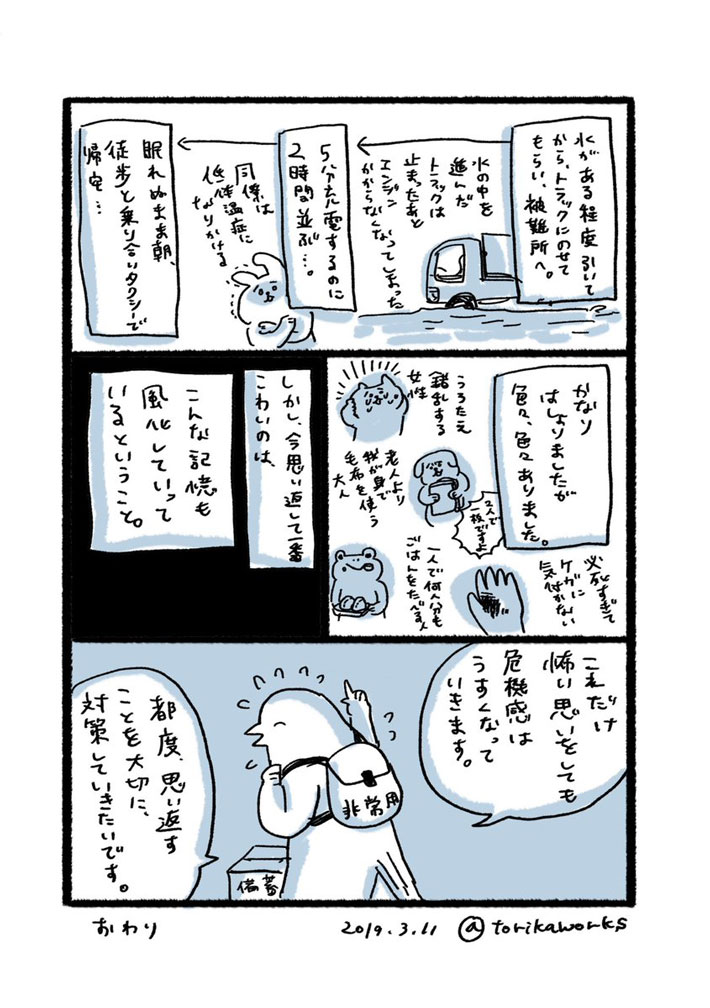 水がある程度引いて
から、トラックにのせて
もらい、被難所へ。
水の中を
進んだ
トラックは
止まったあと
エンジン
かからなくなってしまった
5分充電するのに
2時間並ぶ…。
同僚は
低体温症に
なりかける
眠れぬまま朝、
徒歩と乗り合いタクシーで
帰宅…
かなり
はしょりましたが
色々、色々ありました。
うろたえ
錯乱する
女性
老人より
我が身で
毛布を使う
大人
2人で
一枚ですよ
一人で何人分も
ごはんをたべる人
必死すぎて
ケガに
気付かない
しかし、今思い返して一番
こわいのは、
こんな記憶も
風化していって
いるということ。
これだけ
怖い思いをしても
危機感は
うすくなって
いきます。
非常用
備蓄
都度、思い返す
ことを大切に、
対策していきたいです。
おわり
2019.3.11 @torikaworks